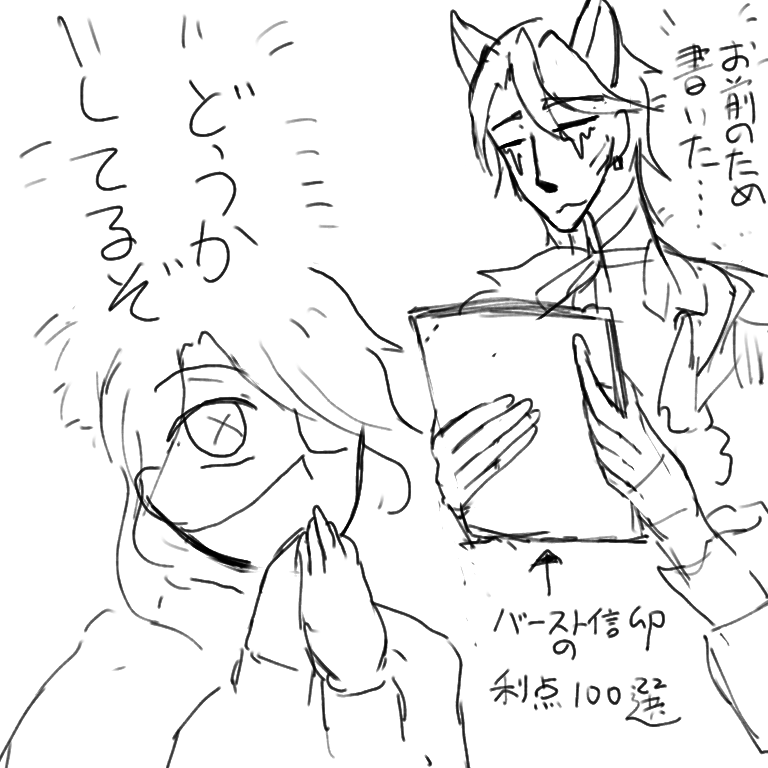 お前のため
書いた……
どうか
してるぞ
バースト信仰
の
利点100選